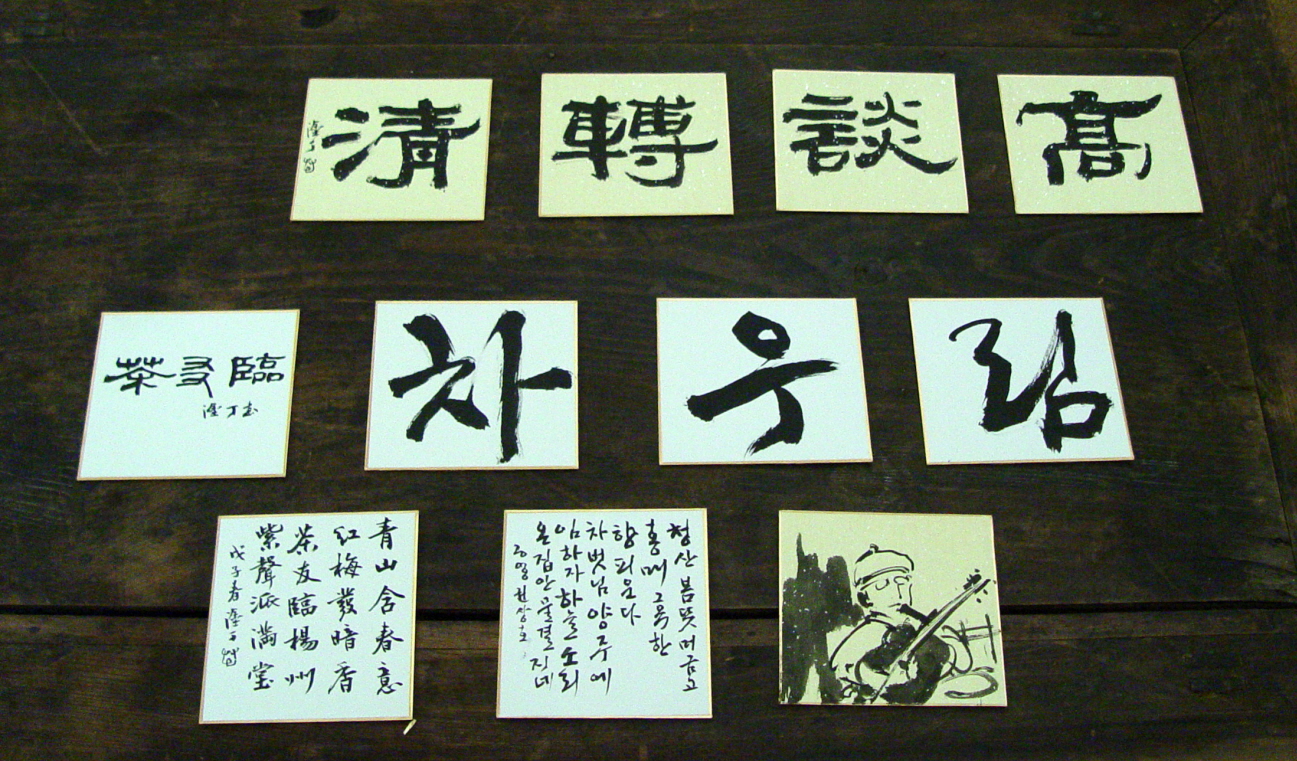 髙談轉清
茶友臨
차우림
青山含春意
紅梅發暗香
茶友臨楊州
紫聲派滿堂
戊子春
청산 봄뜻 머금고
홍매 그윽한
향 피운다
차벗님 양주에
임하자 하늘 소리
온 집안 물결 지네